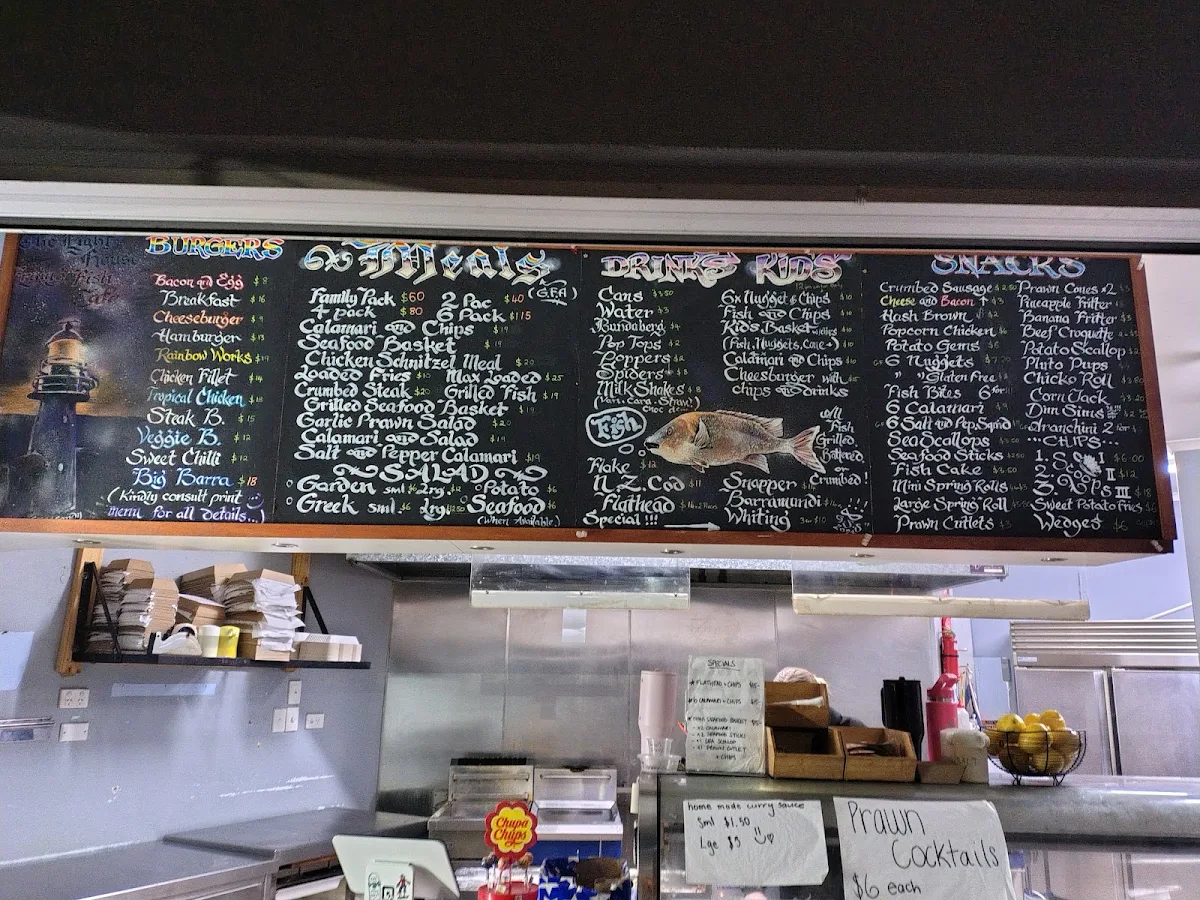 The Light
House
Cafe
BURGERS
Bacon and Egg $8
Breakfast $16
Cheeseburger $9
Hamburger $13
Rainbow Works $19
Chicken Fillet $14
Tropical Chicken
Steak B. $15
Veggie B. $12
Sweet Chilli $12
Big Barra $18
(Kindly consult print
menu for all details...)
Meals
(G.F.A)
Family Pack $60 2 Pac $40
4 pack $80 6 Pack $115
Calamari and Chips $19
Seafood Basket $19
Chicken Schnitzel Meal $20
Loaded Fries $10 Max Loaded $25
Crumbed Steak $20 Grilled Fish $19
Grilled Seafood Basket $19
Garlic Prawn Salad $20
Calamari and Salad $19
Salt and Pepper Calamari $19
SALAD
Garden sml $6 Lrg $12 Potato $6
Greek sml $6 Lrg Seafood $6
(When Available)
DRINKS
Cans $3.50
Water $3
Bundaberg $4
Pop Tops $2
Poppers $2
Spiders $8
Milk Shakes $8
KIDS
6x Nugget & Chips $10
Fish and Chips $10
Kids Basket $10
(Fish, Nuggets, Cala.)
Calamari and Chips $10
Cheesburger with
chips and drinks
Fish
Flake $12
N.Z. Cod $11
Flathead
Special !!!
Snapper
Barramundi
Whiting
All
Fish
Grilled
Battered
or
Crumbed!
SNACKS
Crumbed Sausage $2.50
Cheese and Bacon $3
Hash Brown $2
Popcorn Chicken
Potato Gems $6
6 Nuggets
" " Gluten Free
Fish Bites 6 for
6 Calamari
6 Salt and Pep. Squid
Sea Scallops
Seafood Sticks
Fish Cake
Mini Spring Rolls
Large Spring Roll
Prawn Cutlets
Prawn Cones x2
Pineapple Fritter
Banana Fritter
Beef Croquette
Potato Scallop
Pluto Pups
Chicko Roll
Corn Jack
Dim Sims
Aranchini 2 for
...CHIPS...
$6.00
Sweet Potato Fries
Wedges $6
SPECIALS
FLATHEAD + CHIPS
6 CALAMARI + CHIPS
SEAFOOD BASKET
CALAMARI
SEAFOOD STICKS
SEA SCALLOP
PRAWN CUTLET
+ CHIPS
home made curry sauce
Sml $1.50
Lge $3
Prawn
Cocktails
$6 each
Chupa
Chups